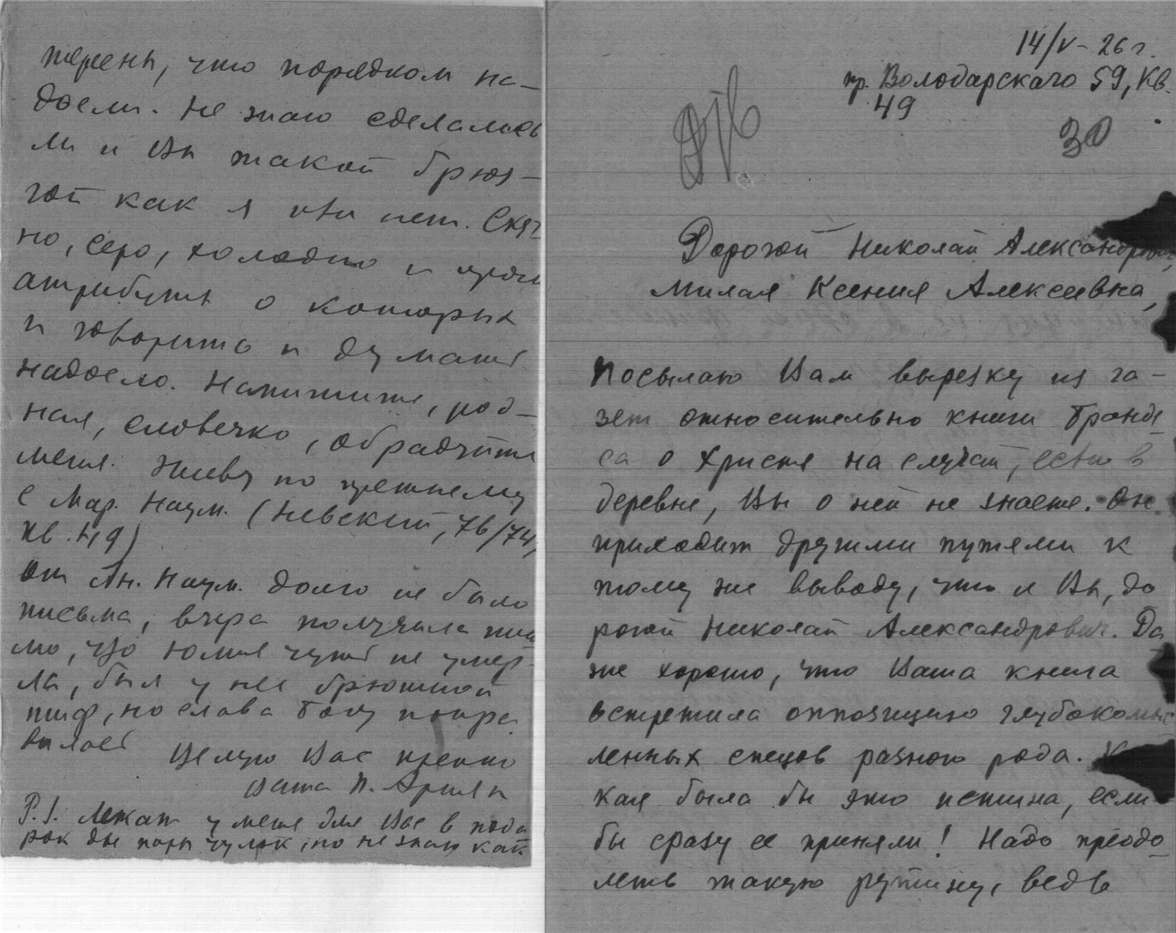 терень, что порядком на-
доели. Не знаю сделались
ли и Вы такой брюз-
гой как я или нет. Скуч-
но, серо, холодно и проч.
атрибуты о которых
и говорить и думать
надоело. Напишите, род-
ная, словечко, обрадуйте
меня. Живу по прежнему
с Мар. Наум. (Невский, 76/74,
кв. 49)
От Ан. Наум. долго не было
письма, вчера получила пись
мо, что Юлия чуть не умер-
ла, был у нее брюшной
тиф, но слава Богу попра
вилась
Целую Вас крепко
Ваша П. Ариян
P.S. Лежат у меня для Вас в пода
рок две пары чулок, но не знаю как
14/V - 26 г.
пр. Володарскаго 59, кв.
49
30
Дорогой Николай Александрович
Милая Ксения Алексеевна,
Посылаю Вам вырезку из га-
зет относительно книги Бранде
са о Христе на случай, если в
деревне, Вы о ней не знаете. Он
приходит другими путями к
тому же выводу, что и Вы, до
рогой Николай Александрович. Да
же хорошо, что Ваша книга
встретила оппозицию глубокомыс
ленных спецов разного рода. Ка
кая была бы это истина, если
бы сразу ее приняли! Надо преодо
леть такую рутину, ведь